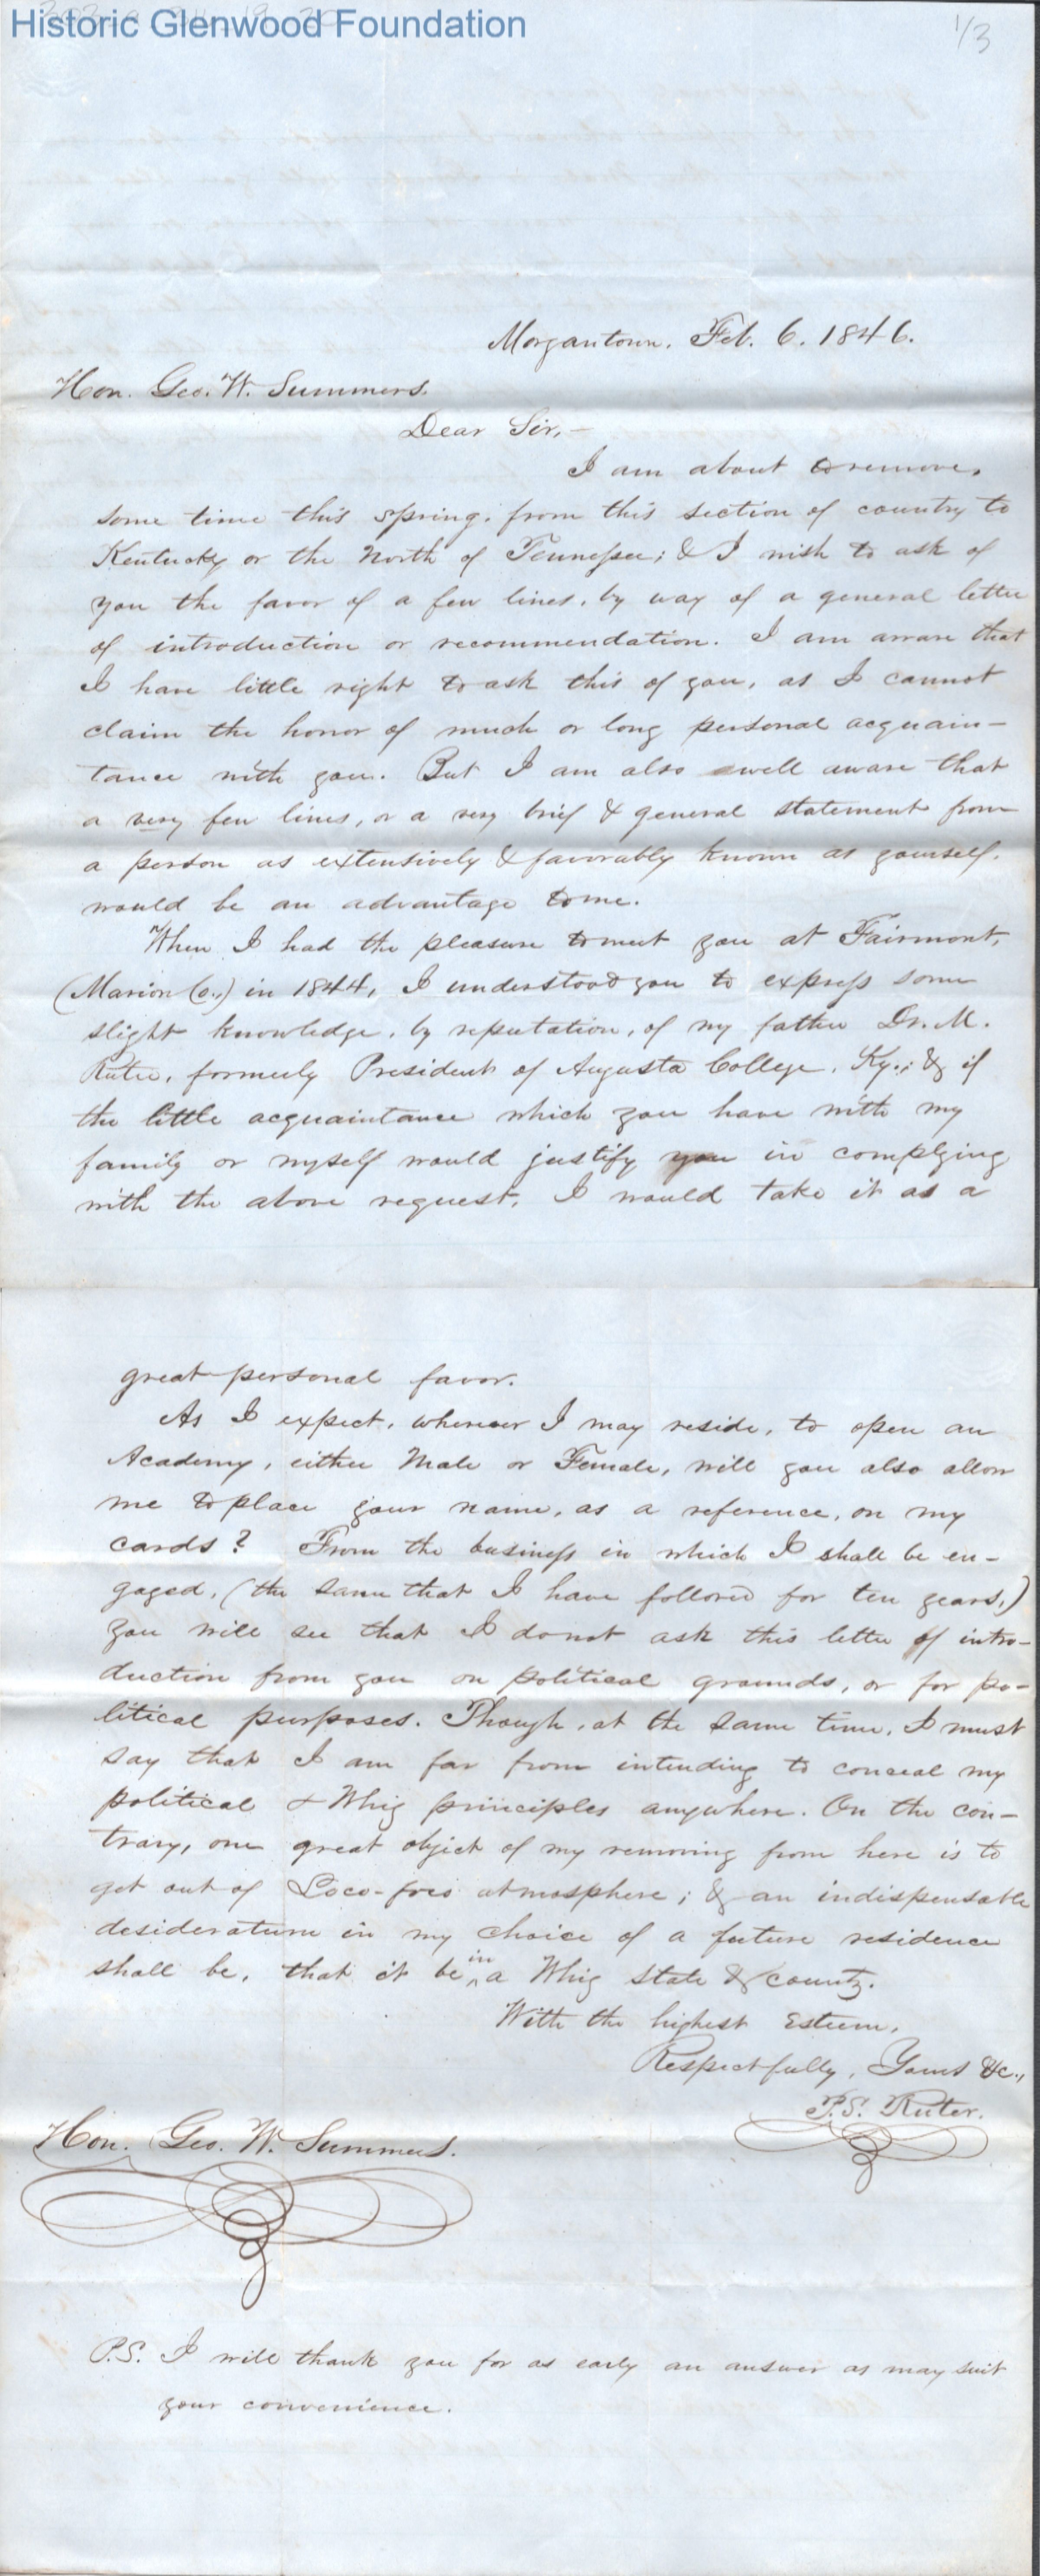 Historic Glenwood Foundation
1/3
Morgantown, Feb. 6. 1846.
Hon. Geo. W. Summers.
Dear Sir, –
I am about to remove,
some time this spring, from this section of country to
Kentucky or the North of Tennessee; & I wish to ask of
you the favor of a few lines, by way of a general letter
of introduction or recommendation. I am aware that
I have little right to ask this of you, as I cannot
claim the honor of much or long personal acquain-
tance with you. But I am also well aware that
a very few lines, or a very brief & general statement from
a person as extensively & favorably known as yourself,
would be an advantage to me.
When I had the pleasure to meet you at Fairmont,
(Marion Co.,) in 1844, I understood you to express some
slight knowledge, by reputation, of my father Dr. M.
Ruter, formerly President of Augusta College, Ky.; & if
the little acquaintance which you have with my
family or myself would justify you in complying
with the above request, I would take it as a
great personal favor.
As I expect, wherever I may reside, to open an
Academy, either Male or Female, will you also allow
me to place your name, as a reference, on my
cards? From the business in which I shall be en-
gaged, (the same that I have followed for ten years,)
you will see that I do not ask this letter of intro-
duction from you on political grounds, or for po-
litical purposes. Though, at the same time, I must
say that I am far from intending to conceal my
political & Whig principles anywhere. On the con-
trary, one great object of my removing from here is to
get out of Loco-foco atmosphere; & an indispensable
desideratum in my choice of a future residence
shall be, that it be in a Whig State & county.
With the highest Esteem,
Respectfully, Yours &c.,
P.S. Ruter.
Hon. Geo. W. Summers.
P.S. I will thank you for as early an answer as may suit
your convenience.